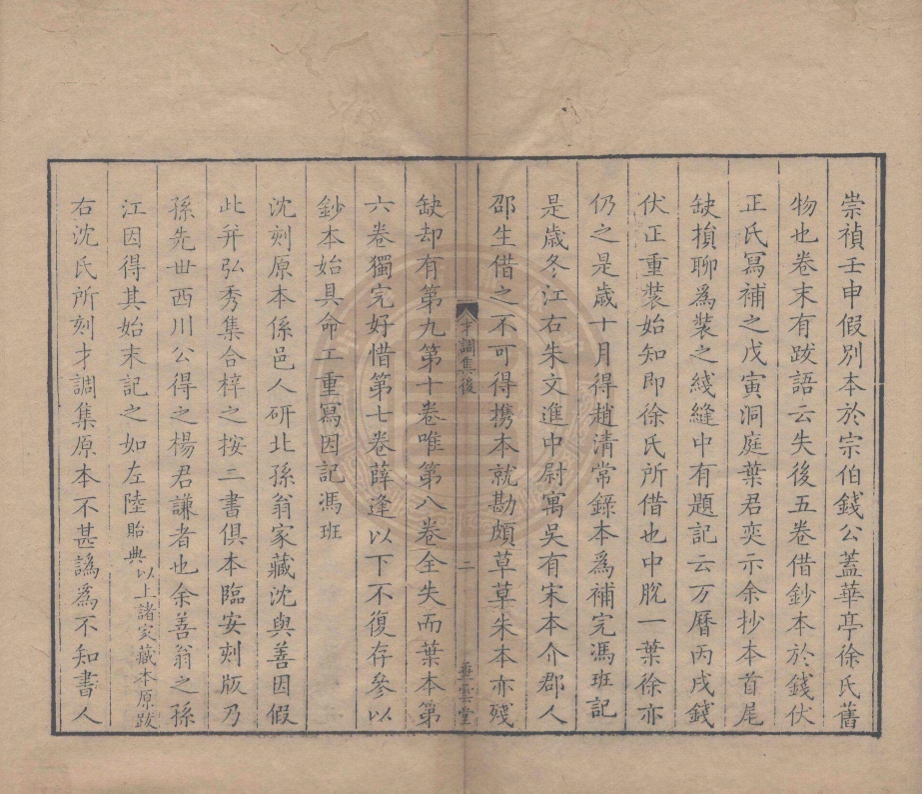 崇禎壬申假別本於宗伯錢公蓋華亭徐氏舊
物也卷末有跋語云失後五卷借鈔本於錢伏
正氏冩補之戊寅洞庭葉君奕示余抄本首尾
缺損聊爲裝之綫縫中有題記云万曆丙戌錢
伏正重裝始知即徐氏所借也中脫一葉徐亦
仍之是歳十月得趙清常錄本爲補完馮班記
是歳冬江右朱文進中尉寓吳有宋本介郡人
邵生借之不可得携本就勘頗草草朱本亦殘
才調集後
二
垂雲堂
缺却有第九第十卷唯第八卷全失而葉本第
六卷獨完好惜第七卷薛逢以下不復存參以
鈔本始具命工重冩因記馮班
沈刻原本係邑人研北孫翁家藏沈與善因假
此并弘秀集合梓之按二書俱本臨安刻版乃
孫先世西川公得之楊君謙者也余善翁之孫
江因得其始末記之如左陸貽典以上諸家藏本原跋
右沈氏所刻才調集原本不甚譌爲不知書人